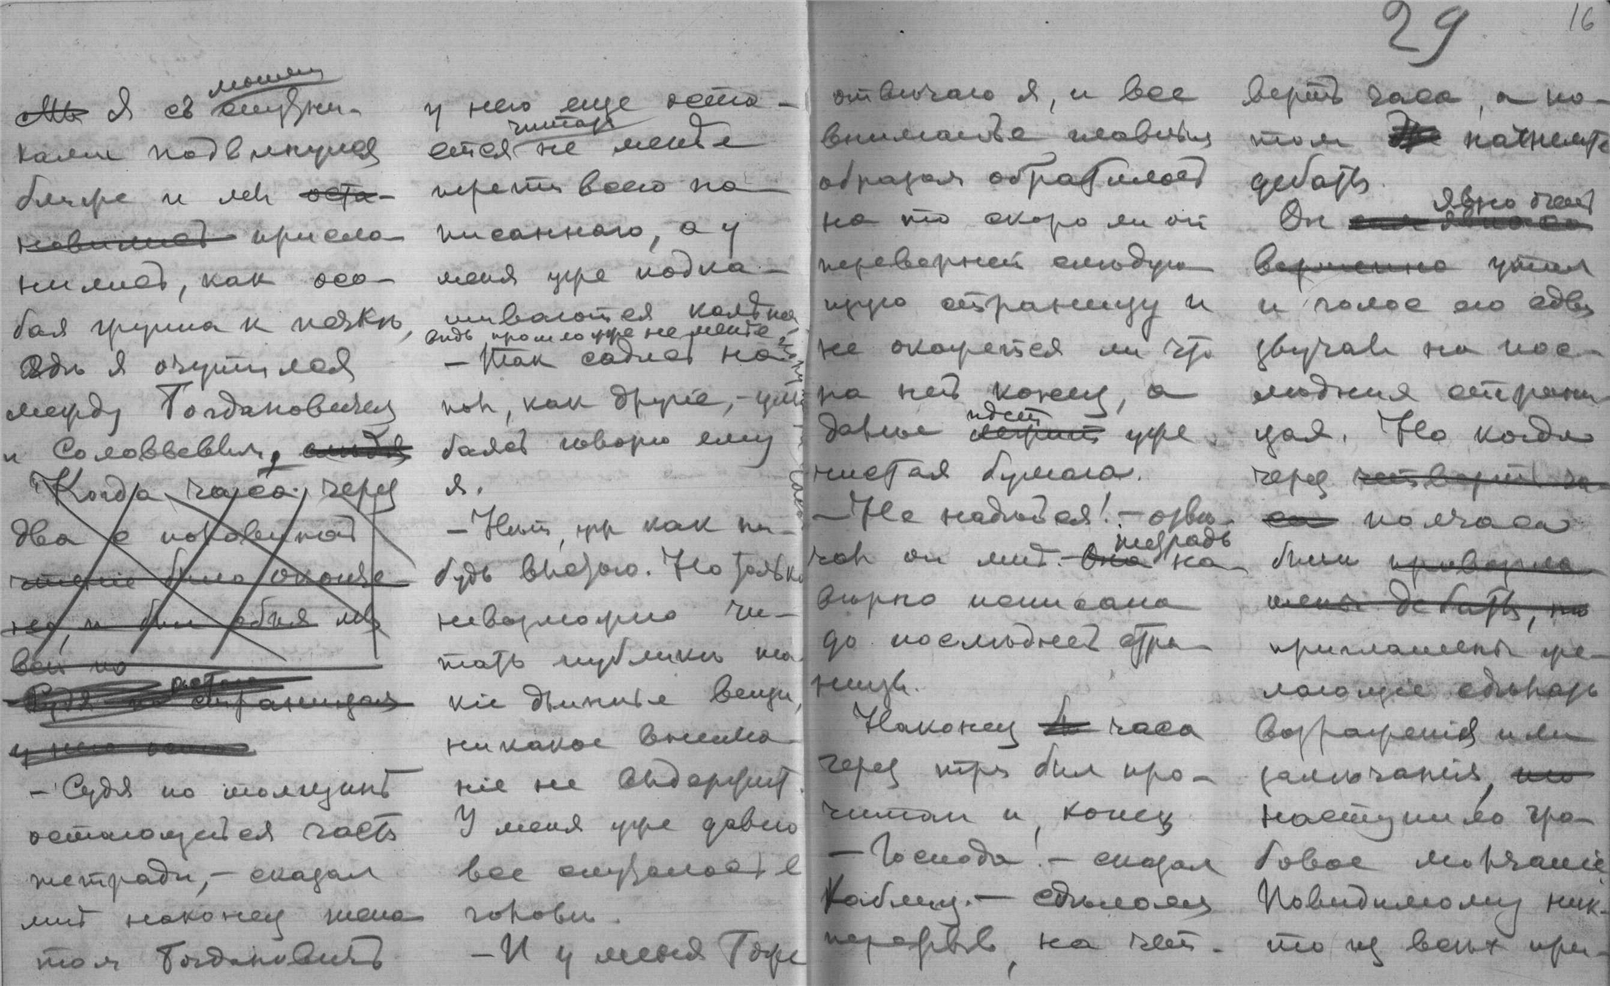 29
16
моими
~~Мы~~ Я съ спутни-
ками подвинулся
ближе и мы ~~оста-~~
~~новились~~ присло-
нились, как осо-
бая группа к печкѣ,
гдѣ я очутился
между Богдановичем
и Соловьевым,
Когда часа через
два с половиной
чтеніе было оконче
но, и был объявлен
~~Судя по страницам~~
~~у него оста~~
– Судя по толщинѣ
остающейся части
тетради, – сказал
мнѣ наконец шепо
том Богданович
у него еще оста-
читать
ется не менѣе
трети всего на-
писаннаго, а у
меня уже подка-
шиваются колѣна,
вѣдь прошло уже не менѣе
– Так садись на
пол, как другіе, – улы
баясь говорю ему
я.
– Нѣт, уж как ни-
будь выстою. Но только
невозможно чи-
тать публикѣ та-
кіе длинные вещи,
никакое внима-
ніе не выдержит.
У меня уже давно
все смѣшалось в
головѣ.
– И у меня тоже
отвѣчаю я, и все
вниманіе главным
образом обратилось
на то скоро ли он
перевернет слѣдую
щую страницу и
не окажется ли что
на ней конец, а
идет
дальше ~~лежит~~ уже
чистая бумага.
– Не надѣйся! – отвѣ-
тетрадь
чал он мнѣ. – ~~Она~~ на-
вѣрно исписана
до послѣдней стра-
ницы.
Наконец ~~в~~ часа
через три был про-
читан и конец
– Господа! – сказал
Каблиц. – Сдѣлаем
перерыв, на чет-
верть часа, а по-
том начнете
дебаты.
явно был
Он
утом
и голос его едва
звучал на пос-
лѣдних страни
цах. Но когда
через ~~четверть ча-~~
~~са~~ полчаса
были ~~провозгла-~~
~~шены дебаты, но~~
приглашены же-
лающіе сдѣлать
возраженія или
замѣчанія, ~~но~~
наступило гро-
бовое молчаніе
Повидимому ник-
то из всѣх при-